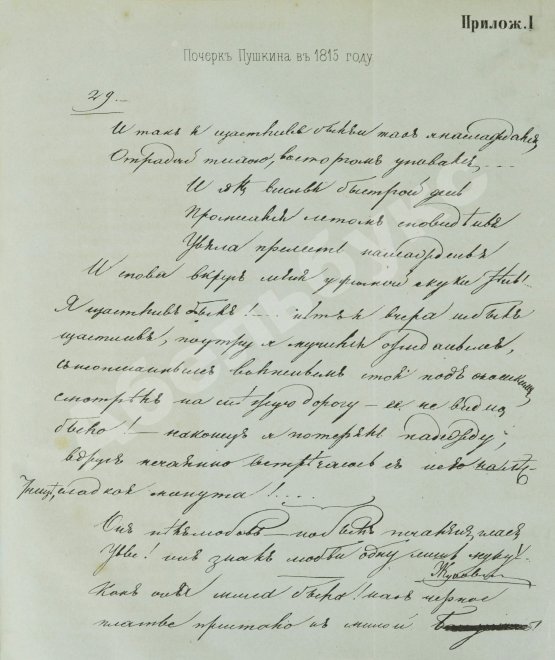 Прилож. I
Почеркъ Пушкина въ 1815 году.
29.
И такъ я щастливъ былъ, и такъ я наслаждался,
Отрадой тихою, восторгомъ упивался.....
И гдѣ веселья быстрой день
Промчался летомъ сновидѣнья
Увяла прелесть наслажденья
И снова вкругъ меня угрюмой скуки тѣнь!
Я щастливъ былъ!... нѣтъ я вчера не былъ
щастливъ, поутру я мучился ожиданьемъ,
съ неописаннымъ волненьемъ стоя подъ окошкомъ,
смотрѣлъ на снѣжную дорогу — ее не видно
было! — наконецъ я потерялъ надежду,
вдругъ нечаянно встрѣчаюсь съ нею на лѣст-
ницѣ, сладкая минута!....
Онъ пѣлъ любовь — но былъ печаленъ гласъ
Увы! онъ зналъ любви одну лишь муку!
Жуковской
Какъ она мила была! какъ черное
платье пристало къ милой